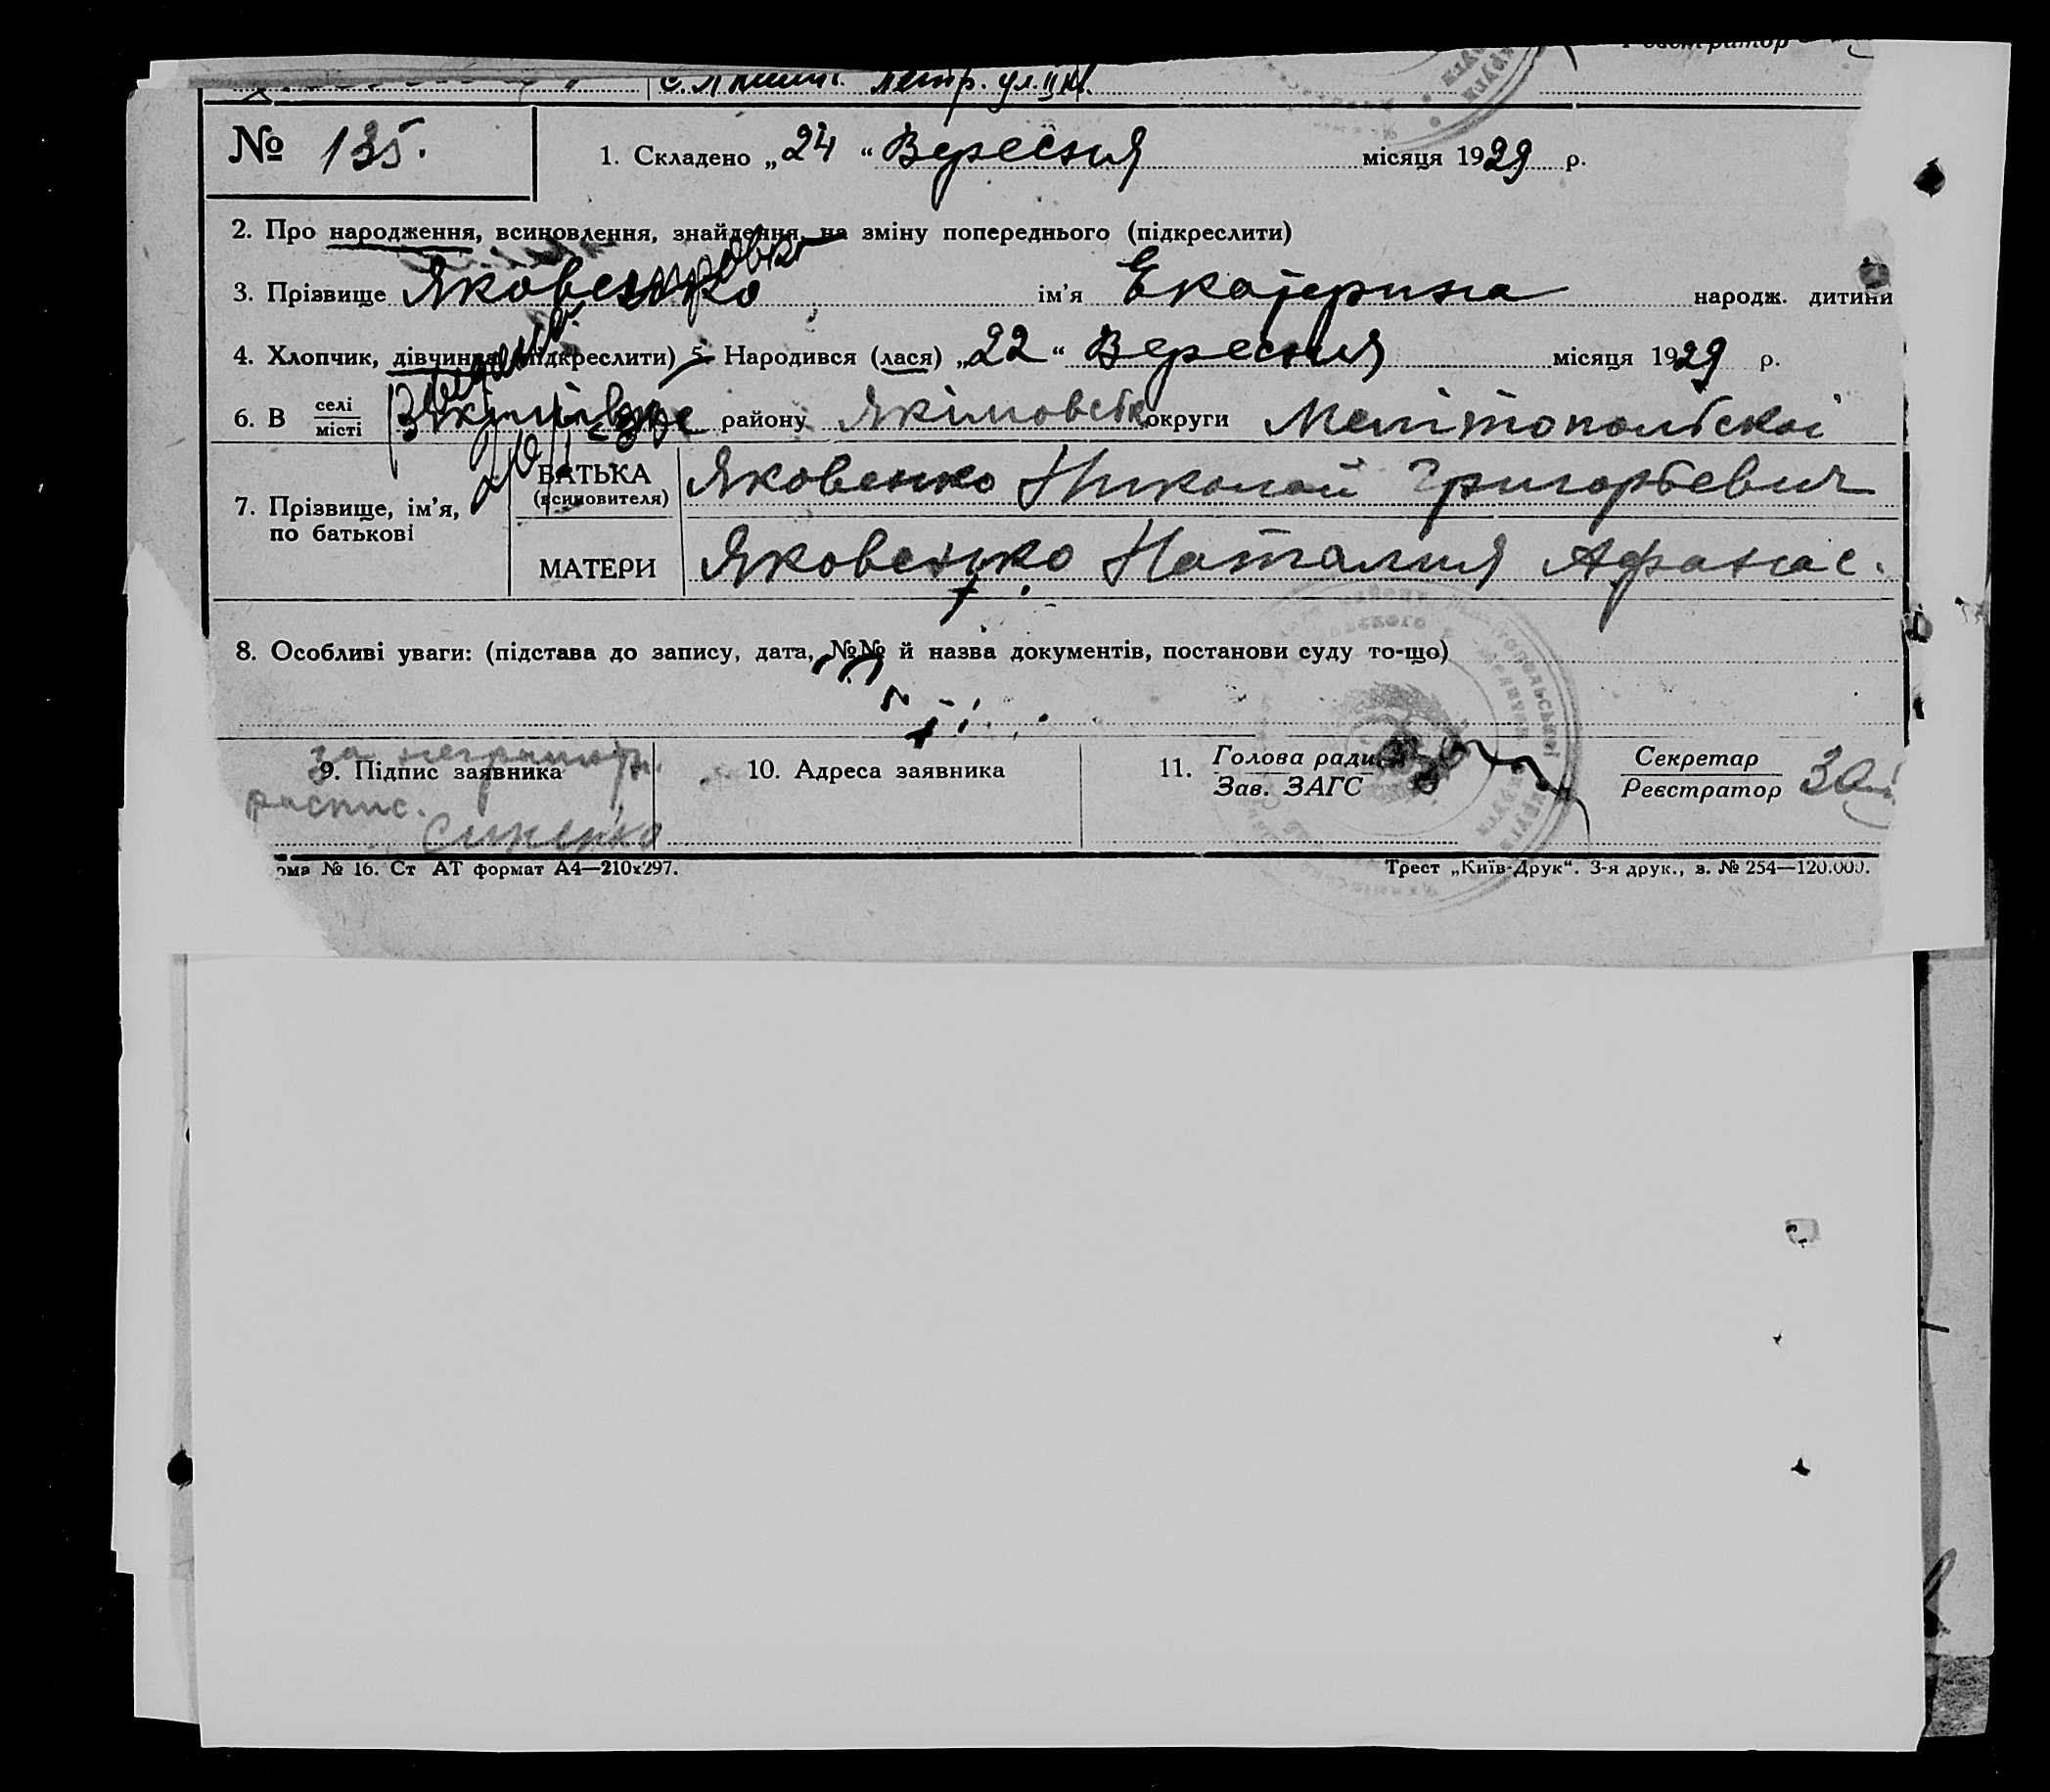 Реєстратор
петр. ул. II кв.
№ 135.
1. Складено „24“ Вересня місяця 1929 р.
2. Про народження, всиновлення, знайдення, на зміну попереднього (підкреслити)
3. Прізвище Яковенко ім'я Екатерина народж. дитини
4. Хлопчик, дівчинка (підкреслити) 5. Народився (лася) „22“ Вересня місяця 1929 р.
6. В селі місті району Якімовськ округи Мелітопольскоі
7. Прізвище, ім'я, по батькові
БАТЬКА (всиновителя) Яковенко Николай Григорьевич
МАТЕРИ Яковенко Наталия Афанас.
8. Особливі уваги: (підстава до запису, дата, №№ й назва документів, постанови суду то-що)
за неграмотн.
9. Підпис заявника
распис.
10. Адреса заявника
11. Голова ради
Зав. ЗАГС
Секретар
Реєстратор
ома № 16. Ст АТ формат А4—210х297.
Трест „Київ-Друк“. 3-я друк., з. № 254—120.000.